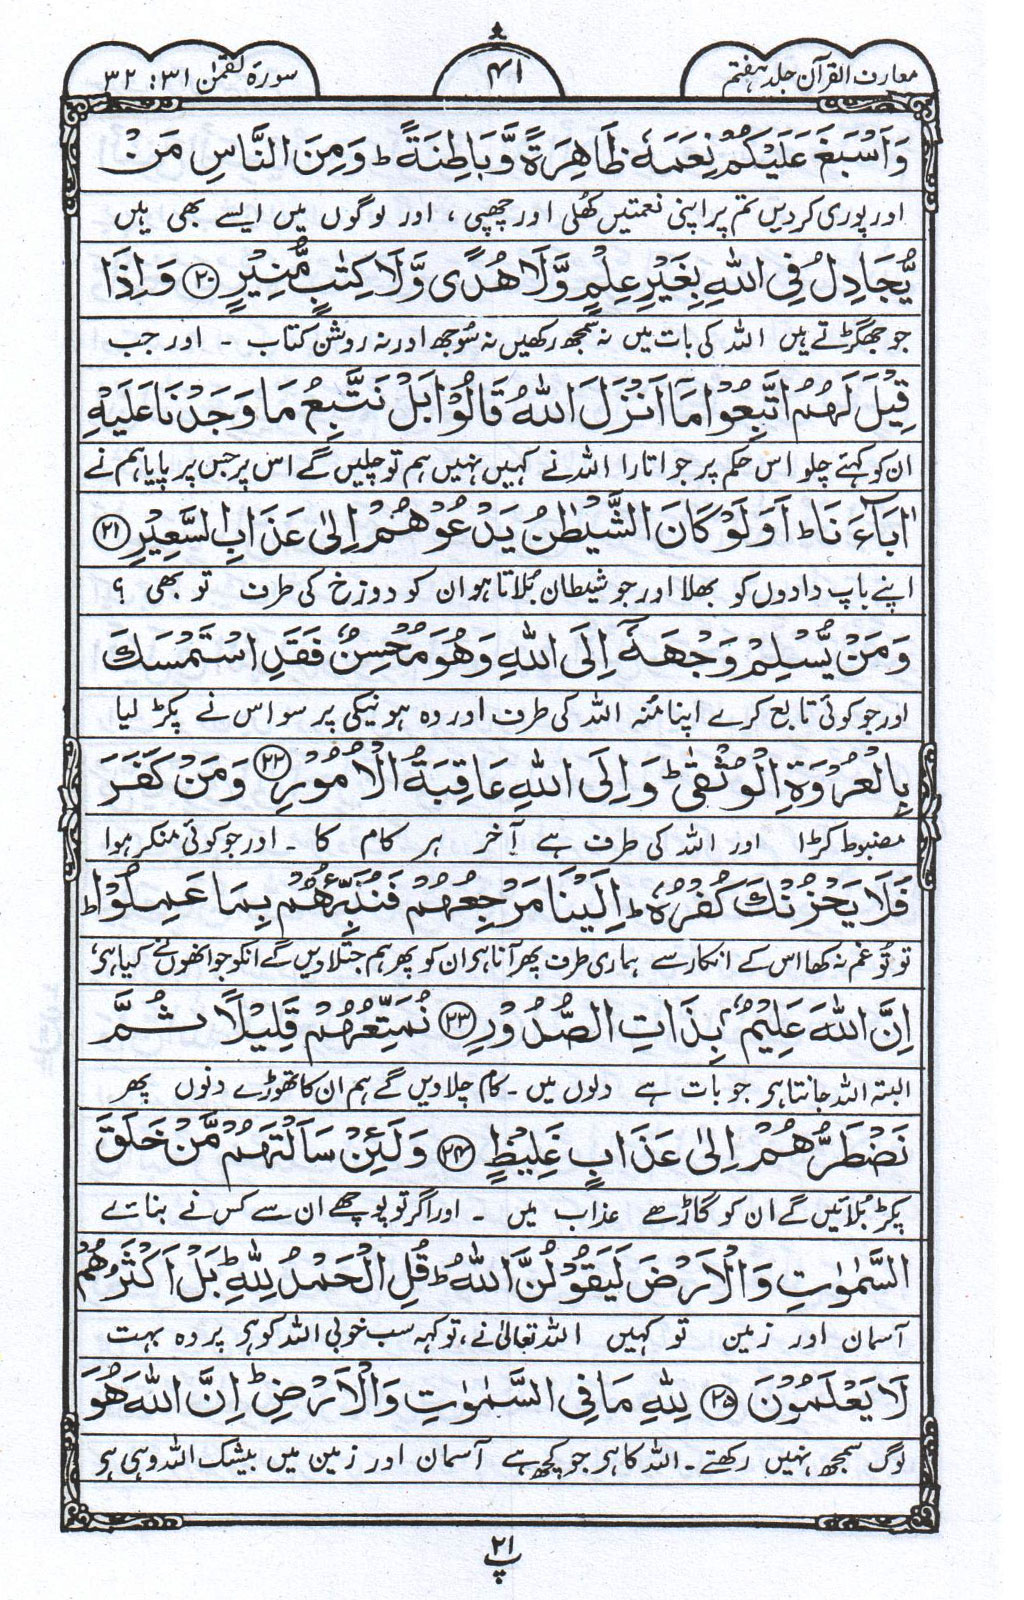 معارف القرآن جلد ہفتم
۴۱
سورۃ لقمٰن ۳۱ : ۳۲
وَاَسْبَغَ عَلَيْكُمْ نِعَمَهٗ ظَاهِرَةً وَّبَاطِنَةً ؕ وَمِنَ النَّاسِ مَنْ
اور پوری کردیں تم پر اپنی نعمتیں کھلی اور چھپی ، اور لوگوں میں ایسے بھی ہیں
يُّجَادِلُ فِى اللّٰهِ بِغَيْرِ عِلْمٍ وَّلَا هُدًى وَّلَا كِتٰبٍ مُّنِيْرٍ ﴿۲۰﴾ وَاِذَا
جو جھگڑتے ہیں اللہ کی بات میں نہ سمجھ رکھیں نہ سُوجھ اور نہ روشن کتاب ۔ اور جب
قِيْلَ لَهُمُ اتَّبِعُوْا مَآ اَنْزَلَ اللّٰهُ قَالُوْا بَلْ نَتَّبِعُ مَا وَجَدْنَا عَلَيْهِ
ان کو کہئے چلو اس حکم پر جو اتارا اللہ نے کہیں نہیں ہم تو چلیں گے اس پر جس پر پایا ہم نے
اٰبَآءَنَا ؕ اَوَلَوْ كَانَ الشَّيْطٰنُ يَدْعُوْهُمْ اِلٰى عَذَابِ السَّعِيْرِ ﴿۲۱﴾
اپنے باپ دادوں کو بھلا اور جو شیطان بُلاتا ہو ان کو دوزخ کی طرف تو بھی ؟
وَمَنْ يُّسْلِمْ وَجْهَهٗٓ اِلَى اللّٰهِ وَهُوَ مُحْسِنٌ فَقَدِ اسْتَمْسَكَ
اور جو کوئی تابع کرے اپنا مُنہ اللہ کی طرف اور وہ ہو نیکی پر سو اس نے پکڑ لیا
بِالْعُرْوَةِ الْوُثْقٰى ؕ وَاِلَى اللّٰهِ عَاقِبَةُ الْاُمُوْرِ ﴿۲۲﴾ وَمَنْ كَفَرَ
مضبوط کڑا اور اللہ کی طرف ہے آخر ہر کام کا ۔ اور جو کوئی منکر ہوا
فَلَا يَحْزُنْكَ كُفْرُهٗ ؕ اِلَيْنَا مَرْجِعُهُمْ فَنُنَبِّئُهُمْ بِمَا عَمِلُوْا ؕ
تو تُو غم نہ کھا اس کے انکار سے ہماری طرف پھر آنا ہو ان کو پھر ہم جتلادیں گے انکو جو انھوں نے کیا ہو،
اِنَّ اللّٰهَ عَلِيْمٌۢ بِذَاتِ الصُّدُوْرِ ﴿۲۳﴾ نُمَتِّعُهُمْ قَلِيْلًا ثُمَّ
البتہ اللہ جانتا ہو جو بات ہے دلوں میں ۔ کام چلادیں گے ہم ان کا تھوڑے دنوں پھر
نَضْطَرُّهُمْ اِلٰى عَذَابٍ غَلِيْظٍ ﴿۲۴﴾ وَلَئِنْ سَاَلْتَهُمْ مَّنْ خَلَقَ
پکڑ بُلائیں گے ان کو گاڑھے عذاب میں ۔ اور اگر تو پوچھے ان سے کس نے بنائے
السَّمٰوٰتِ وَالْاَرْضَ لَيَقُوْلُنَّ اللّٰهُ ؕ قُلِ الْحَمْدُ لِلّٰهِ ؕ بَلْ اَكْثَرُهُمْ
آسمان اور زمین تو کہیں اللہ تعالیٰ نے، تو کہہ سب خوبی اللہ کو ہو پر وہ بہت
لَا يَعْلَمُوْنَ ﴿۲۵﴾ لِلّٰهِ مَا فِى السَّمٰوٰتِ وَالْاَرْضِ ؕ اِنَّ اللّٰهَ هُوَ
لوگ سمجھ نہیں رکھتے ۔ اللہ کا ہو جو کچھ ہے آسمان اور زمین میں بیشک اللہ وہی ہو
۲۱
پ